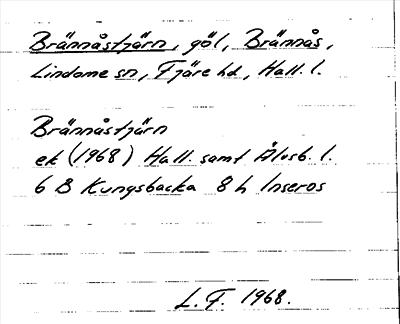 Brännåstjärn, göl, Brännås,
Lindome sn, Fjäre hd, Hall. l.
Brännåstjärn
ek (1968) Hall. samt Älvsb. l.
6 B Kungsbacka 8 h Inseros
L. F. 1968.